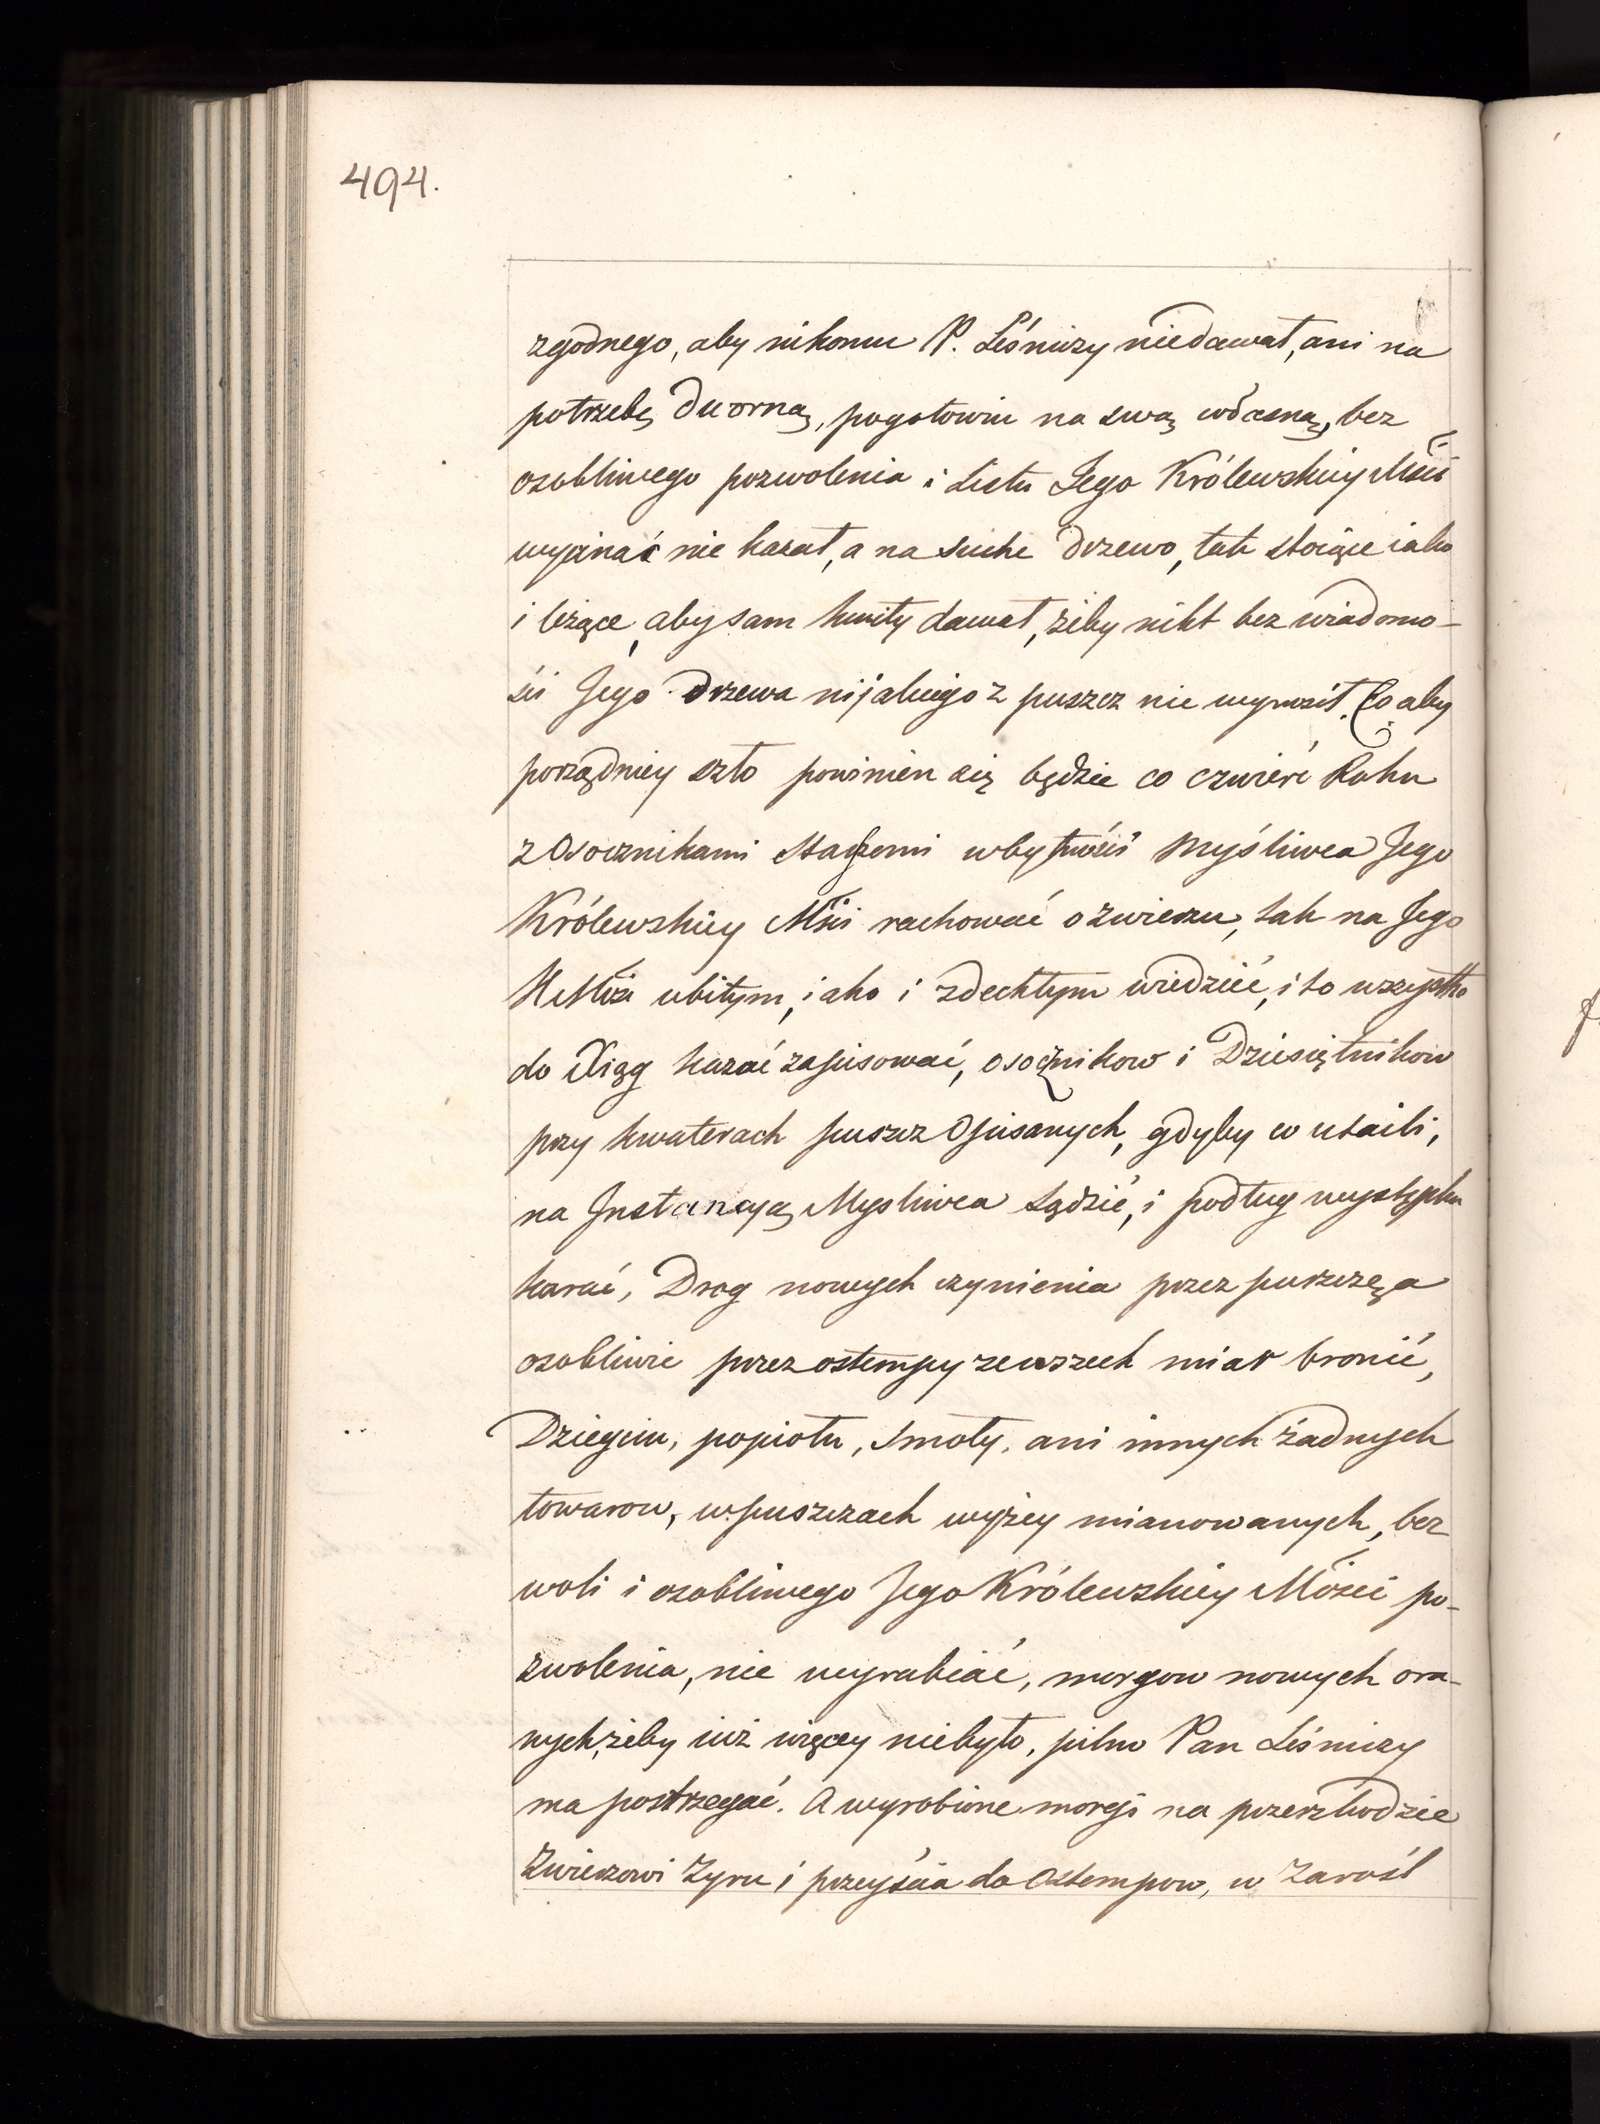 494.
zgodnego, aby nikomu P. Leśniczy niedawał, ani na
potrzebę Dworną, pogotowiu na swą własną, bez
osobliwego pozwolenia i Listu Jego Królewskiey Mści
wycinać nie kazał, a na suche Drzewo, tak stoiące iako
i leżące, aby sam kwity dawał, żeby nikt bez wiadomo-
ści Jego Drzewa nijakiego z puszcz nie wywoził. Co aby
porządniey szło powinien się będzie co czwierć Roku
z Osocznikami Starszemi wbytności Myśliwca Jego
Królewskiey Mści rachować o zwierzu, tak na Jego
KMści ubitym, iako i zdechłym wiedzieć, i to wszystko
do Xiąg kazać zapisować, osocznikow i Dziesiętnikow
przy kwaterach puszcz Opisanych, gdyby co utaili,
na Instancyą Mysliwca sądzić, i podług występku
karać, Drog nowych czynienia przez puszczę a
osobliwie przez ostempy zewszech miar bronić,
Dziegciu, popiołu, smoły, ani innych żadnych
towarow, wpuszczach wyżey mianowanych, bez
woli i osobliwego Jego Królewskiey Mości po-
zwolenia, nie wyrabiać, morgow nowych ora-
nych, żeby iuż więcey niebyło, pilno Pan Leśniczy
ma postrzegać. A wyrobione morgi na przeszkodzie
Zwierzowi Zyru i przeyścia do Ostempow, w Zarośl